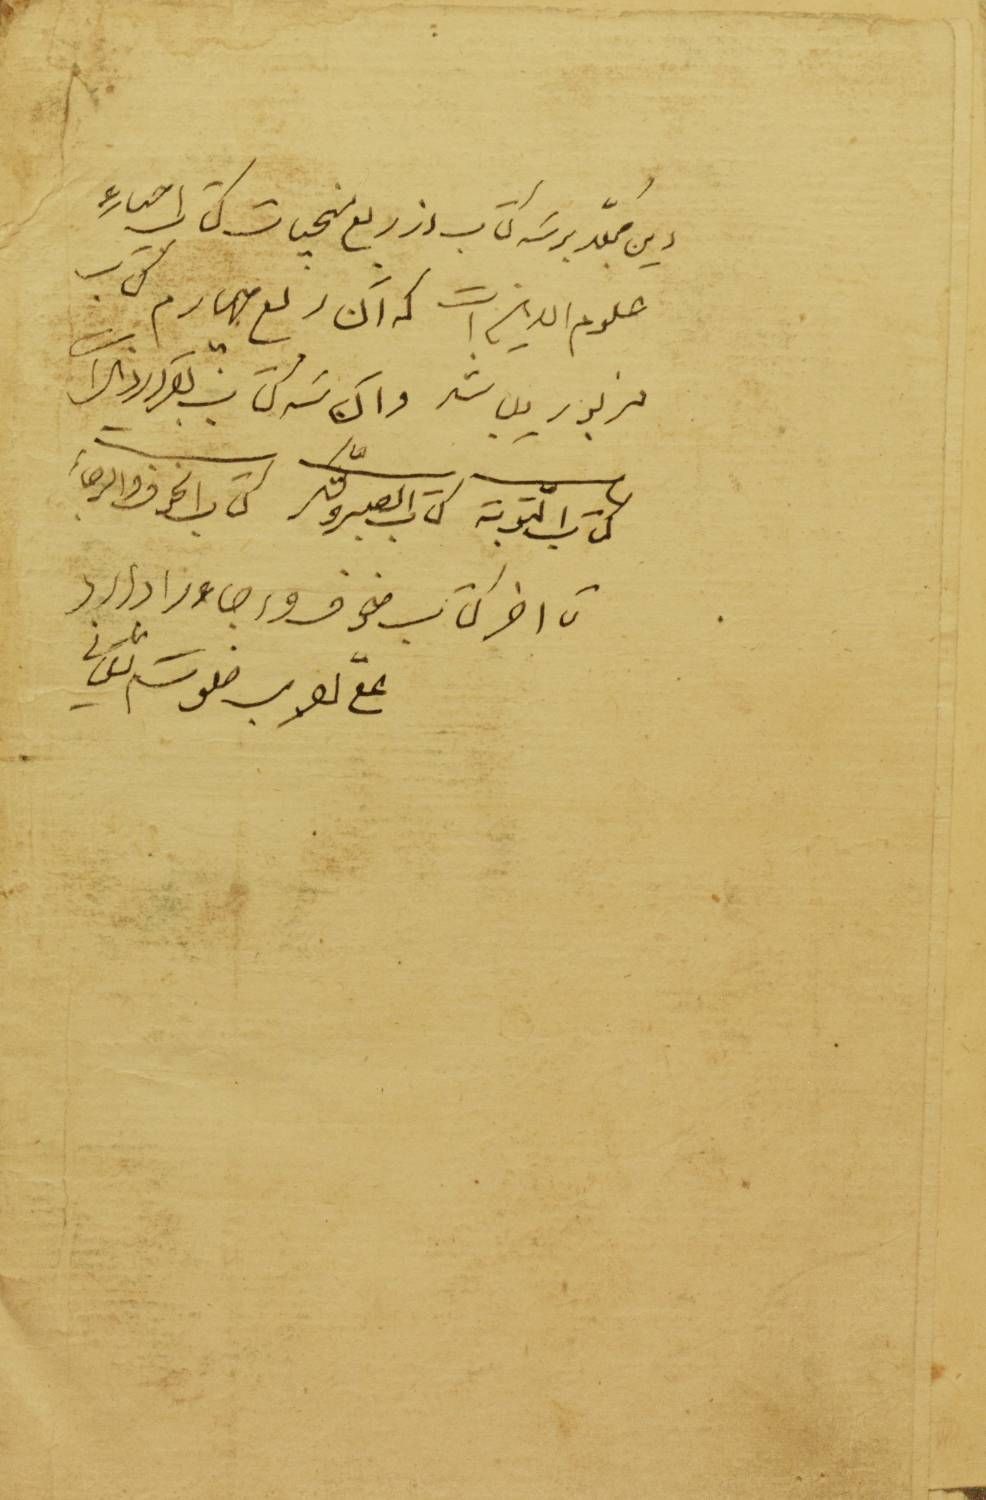 این مجلد بر سه کتاب از ربع منجیات کتاب احیاء
علوم الدین است که آن ربع چهارم کتاب
مزبور میباشد و آن سه کتاب بقرار ذیل است
کتاب التوبة کتاب الصبر والشکر کتاب الخوف والرجاء
تا آخر کتاب خوف و رجاء را دارد